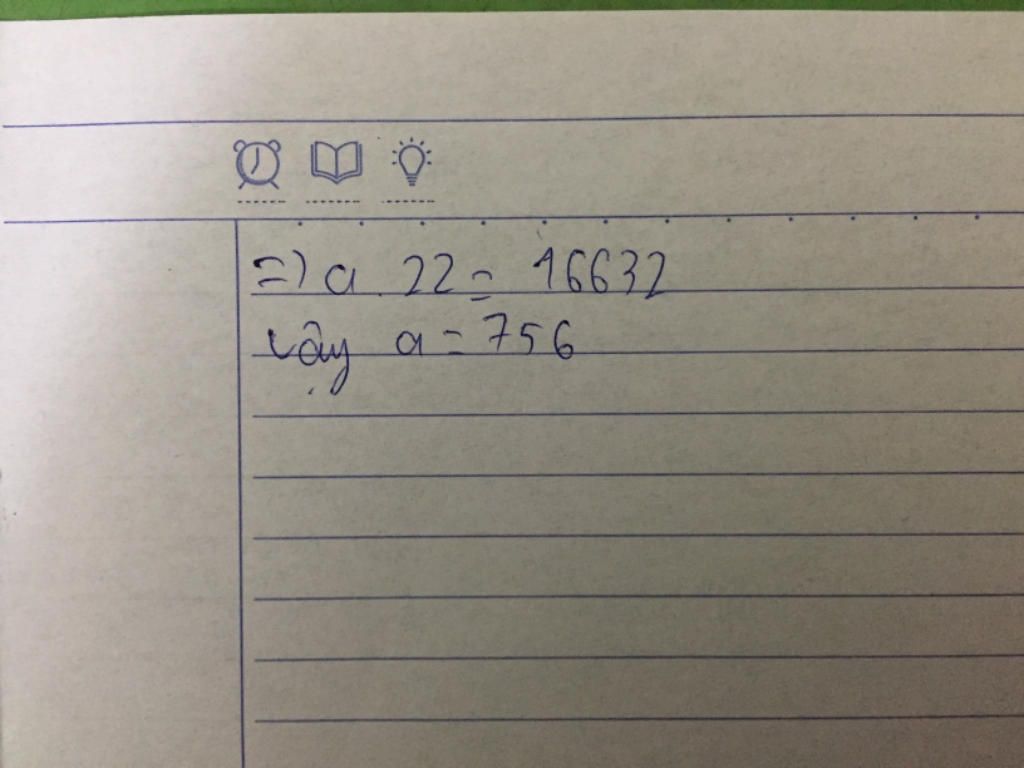 =) a . 22 = 16632
Vậy a = 756